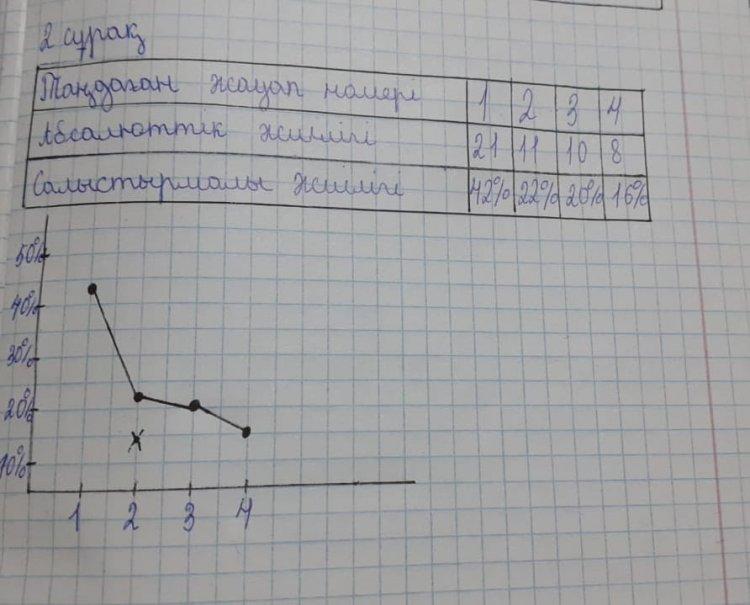 2 сұрақ
Таңдаған жауап номері 1 2 3 4
Абсалюттік жиілігі 21 11 10 8
Салыстырмалы жиілігі 42% 22% 20% 16%
50%
40%
30%
20%
10%
1 2 3 4